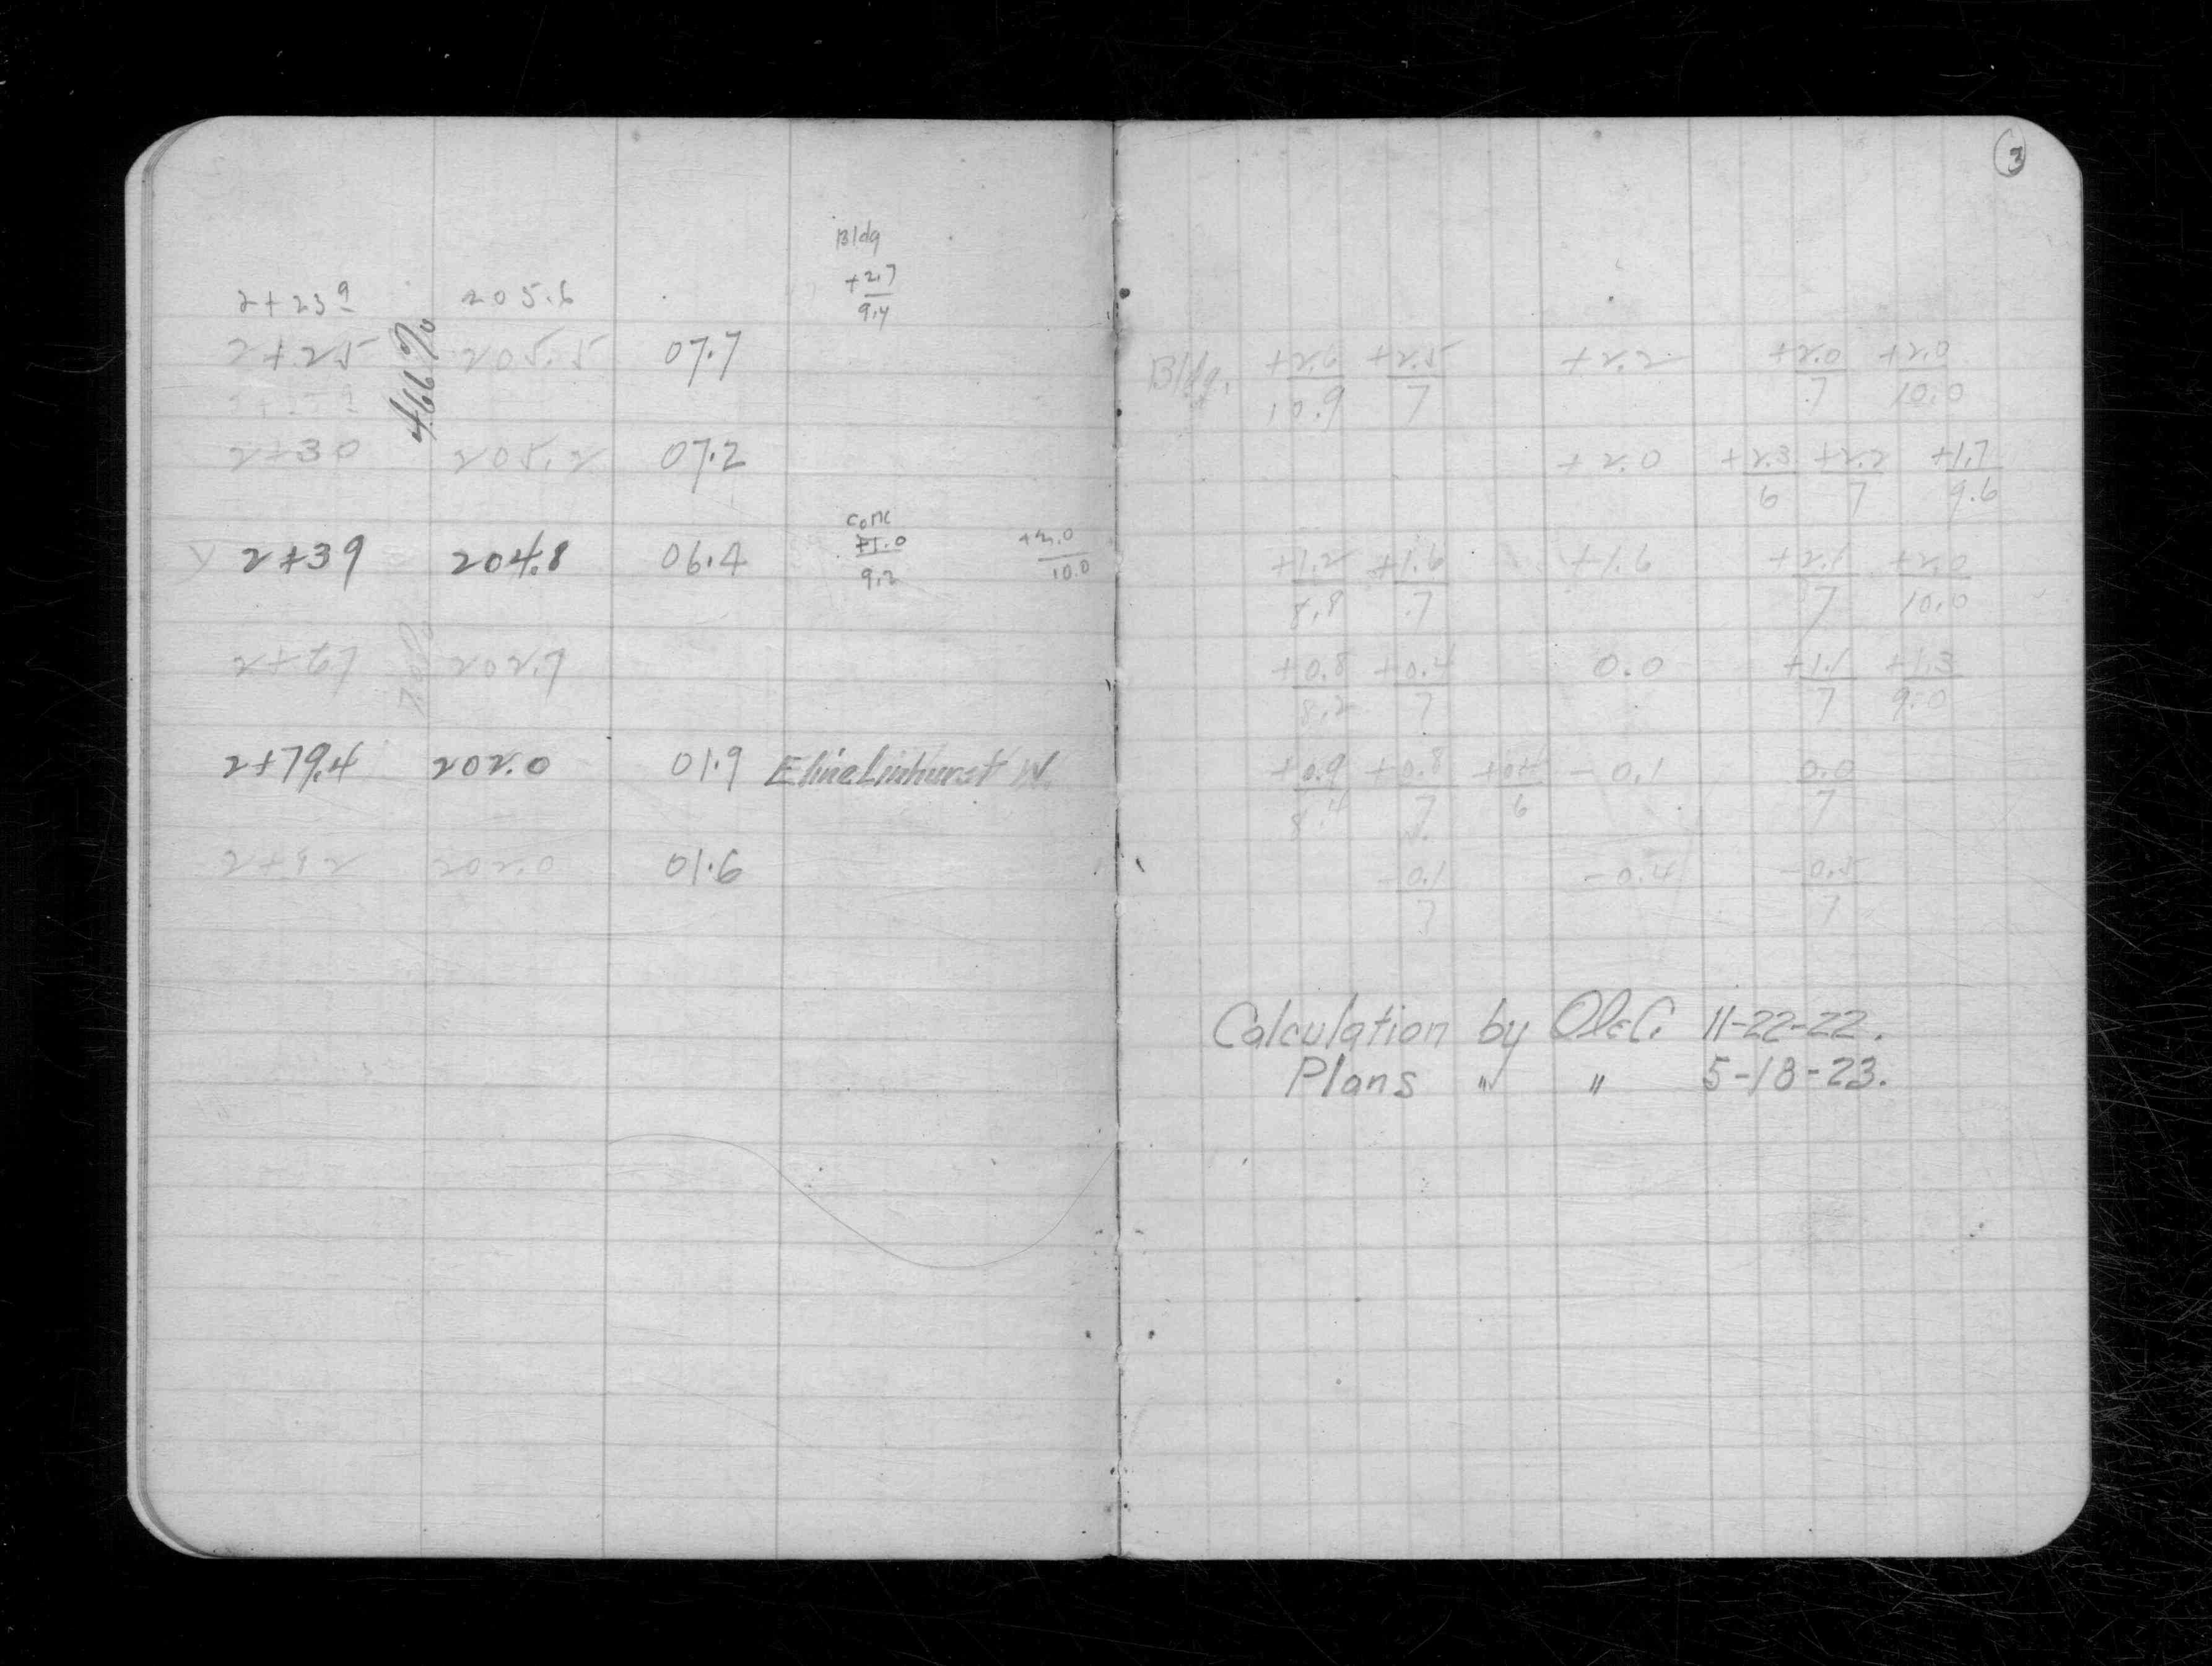 3
Bldg
+2.7
9.4
2+23 9 205.6
2+25 205.55 07.7
4.66%
2+30 205.2 07.2
Conc
2+39 204.8 06.4 +1.0 +2.0
9.2 10.0
2+67 202.7
2+79.4 202.0 01.9 E line Linhurst
202.0 01.6
Bldg. +2.6 +2.5 +2.2 +2.0 +2.0
10.9 7 7 10.0
+2.0 +2.3 +2.2 +1.7
6 7 9.6
+1.2 +1.6 +1.6 +2.1 +2.0
8.8 7 7 10.0
+0.8 +0.4 0.0 +1.1 +1.3
8.2 7 7 9.0
+0.9 +0.8 +0.4 -0.1 0.0
8.4 7 6 7
-0.1 -0.4 -0.5
7 7
Calculation by 11-22-22.
Plans " " 5-18-23.